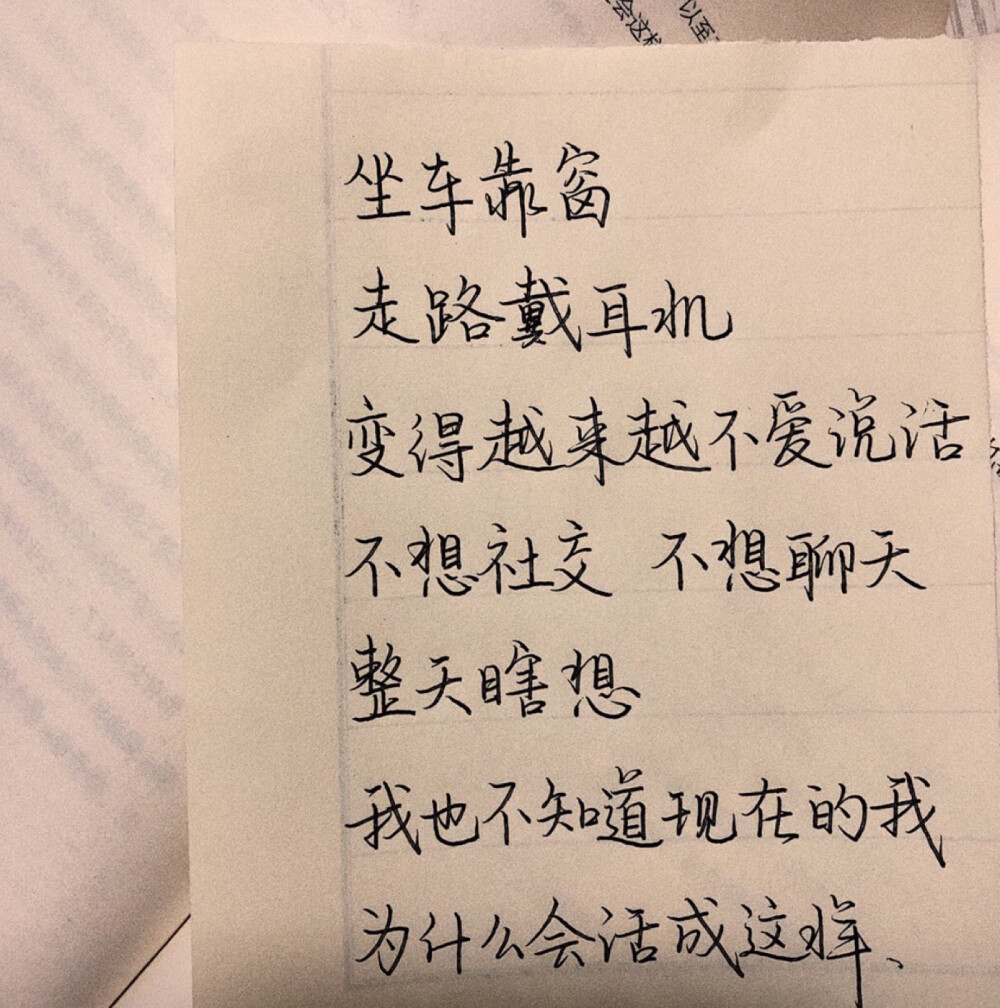 以至
会这样
坐车靠窗
走路戴耳机
变得越来越不爱说话
不想社交 不想聊天
整天瞎想
我也不知道现在的我
为什么会活成这样、